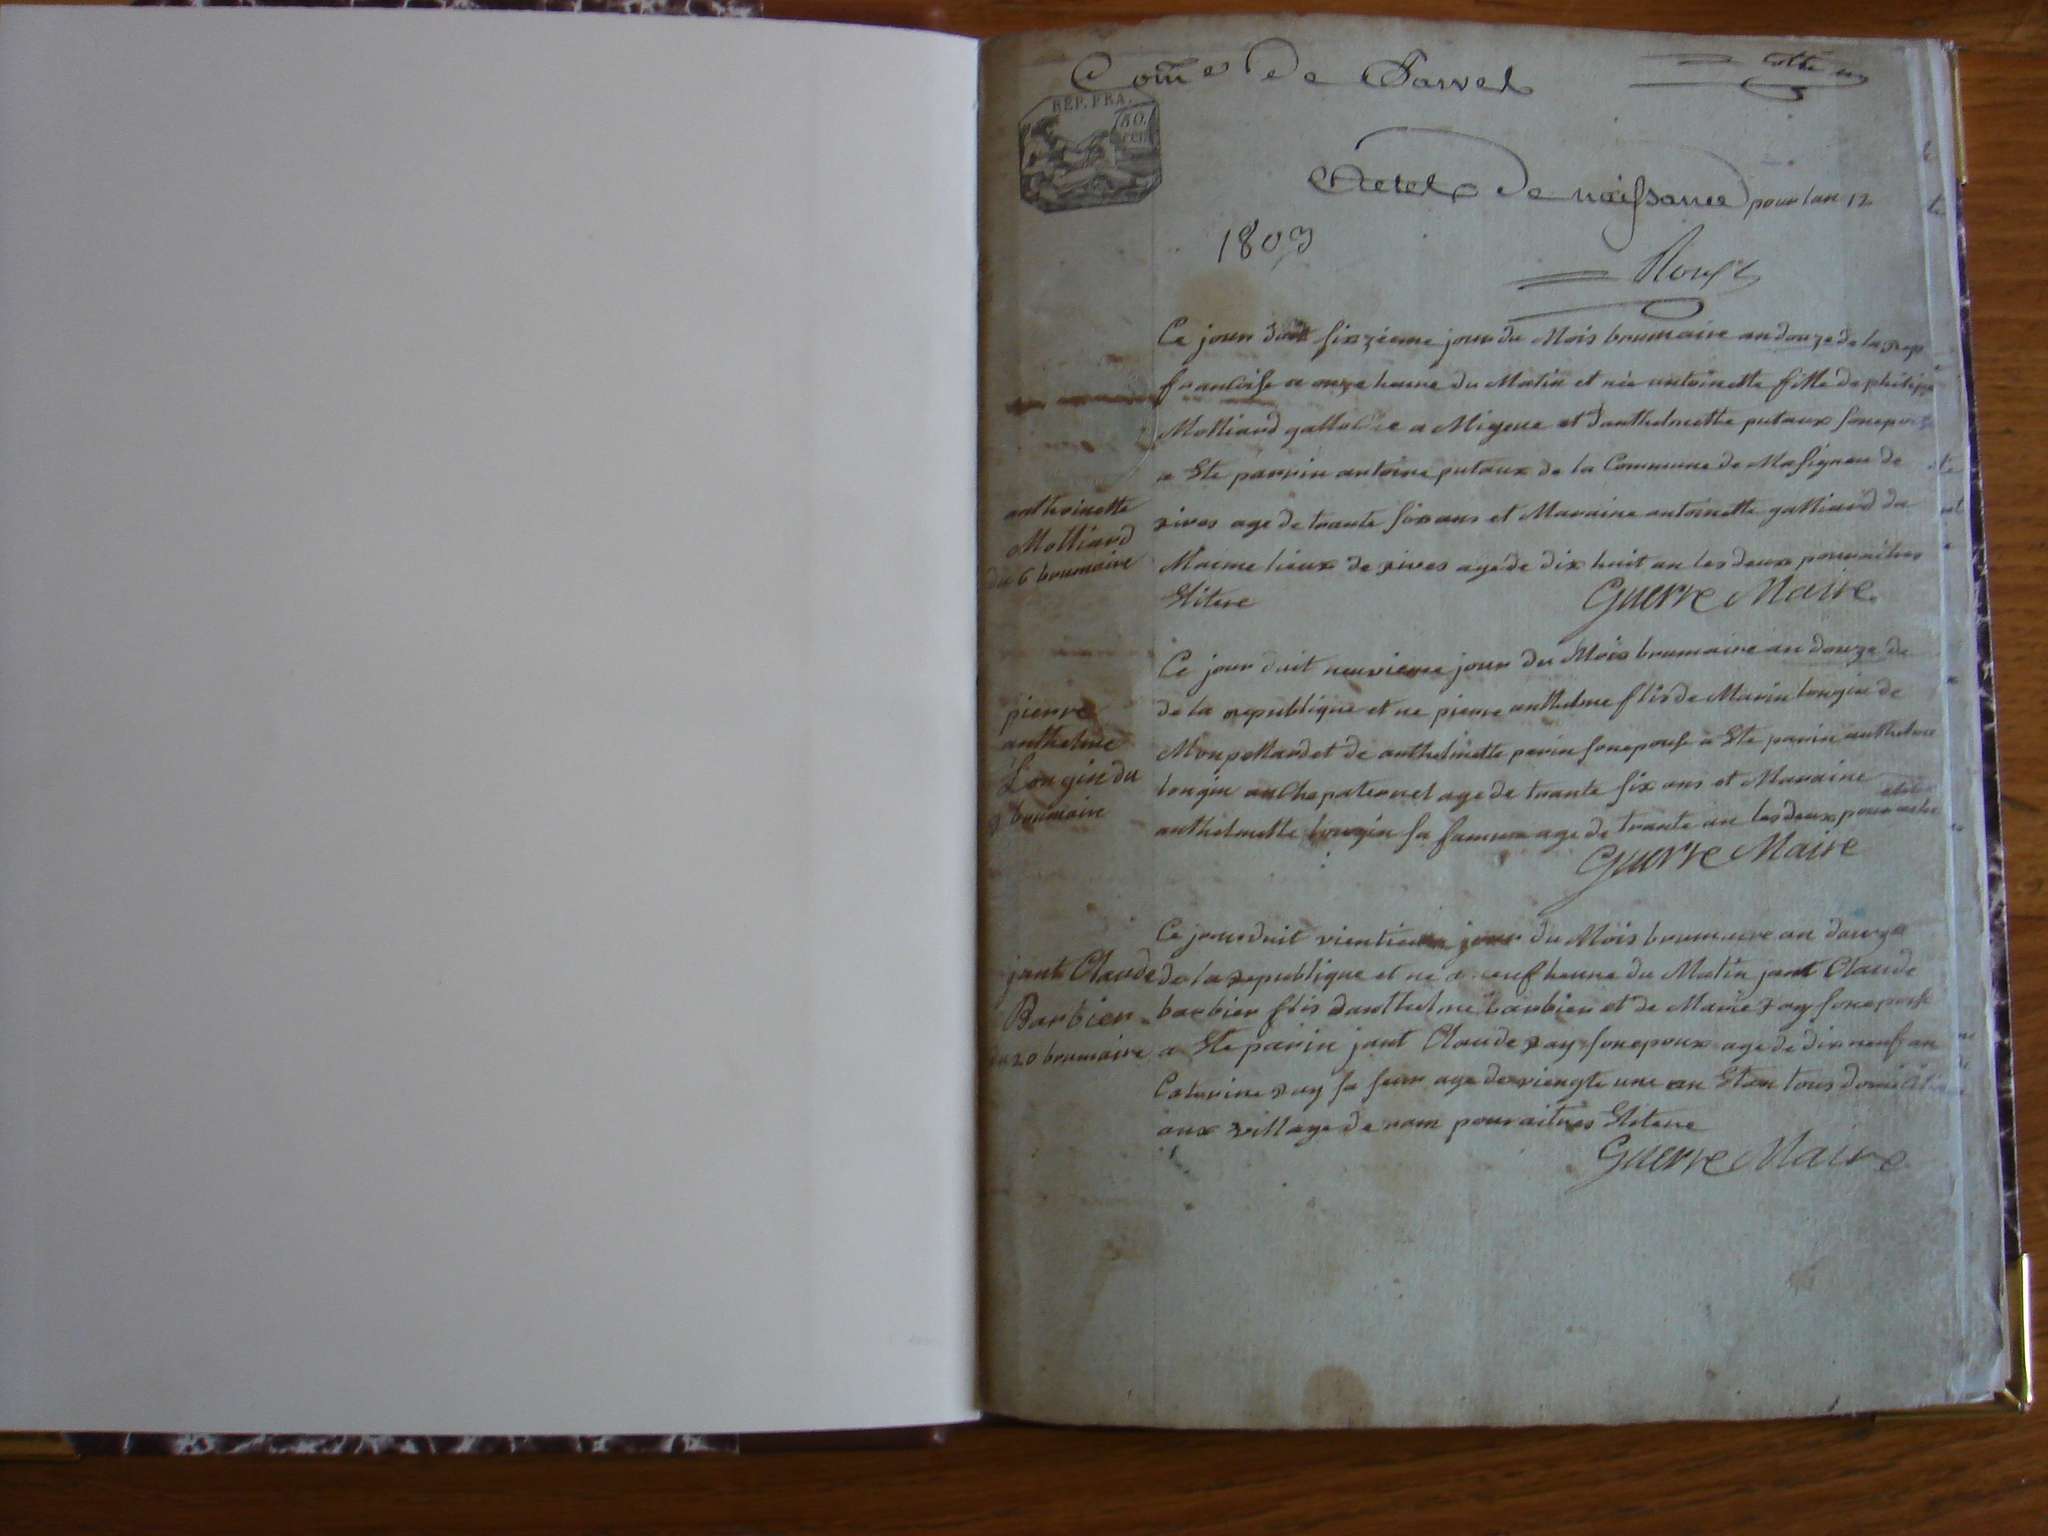 Com̃e de Parvel
REP. FRA.
50
actes de naissance pour lan 12
1803
Roux
Ce jour duit sixzieme jour du Mois brumaire an douze de la rep
francaise a onze heure du Matin et née antoinette fille de philipe
Molliard et danthelmette putaux son epouse
a Ete parrin antoine putaux de la Commune de Masigneu de
rives age de trante six ans et Maraine antoinette galliard de
Maime lieux de rives agé de dix huit an les deux pouraitres
Eliterre
Guerre Maire
anthoinette
Molliard
du 6 brumaire
Ce jour duit neuvieme jour du Mois brumaire an douze de
de la republique et ne pierre anthelme flis de Marin longin de
et de anthelmette perin son epouse a Ete parin anthelme
longin paternel age de trante six ans et Maraine
anthelmette longin sa famme age de trante an les deux pouraitre
Guerre Maire
pierre
anthelme
Longin du
9 brumaire
Ce jour duit vientieme jour du Mois brumaire an douze
de la republique et ne a neuf heure du Matin jant Claude
barbier flis danthelme barbier et de Marie ray son epouse
a Ete parin jant Claude ray son epoux age de dix neuf an
Caterine ray sa seur age de viengte une an Etan tous domicilie
aux village de nam pouraitres Eliterre
Guerre Maire
jant Claude
Barbier
du 20 brumaire